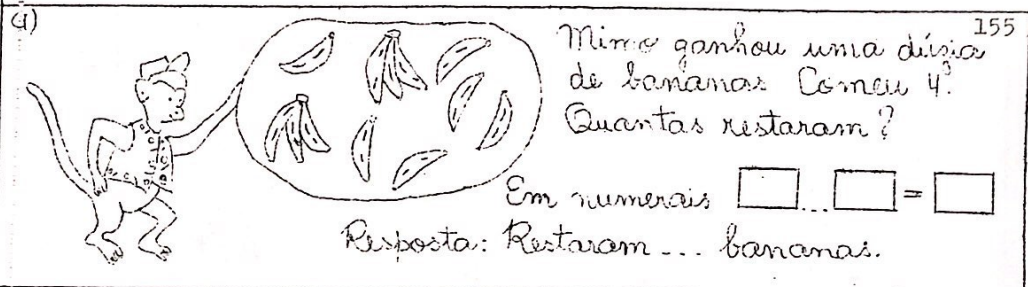 a)
155
Mimo ganhou uma dúzia
de bananas. Comeu 4.
Quantas restaram?
Em numerais ☐...☐=☐
Resposta: Restaram ... bananas.